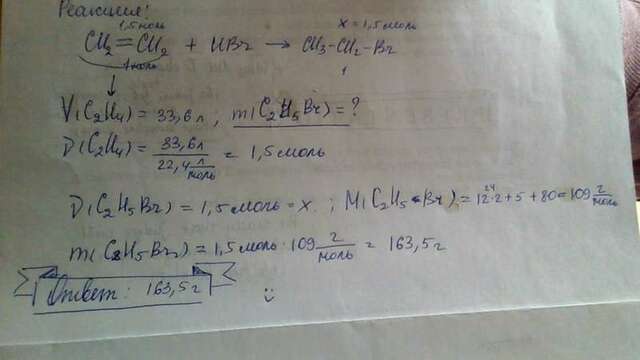 Реакция!
1,5 моль x = 1,5 моль
CH₂=CH₂ + HBr → CH₃-CH₂-Br
1 моль 1
V(C₂H₄) = 33,6 л ; m(C₂H₅Br) = ?
ν(C₂H₄) = 33,6 л / 22,4 л/моль = 1,5 моль
ν(C₂H₅Br) = 1,5 моль = x. ; M(C₂H₅Br) = 12·2 + 5 + 80 = 109 г/моль
24
m(C₂H₅Br) = 1,5 моль · 109 г/моль = 163,5 г
Ответ: 163,5 г